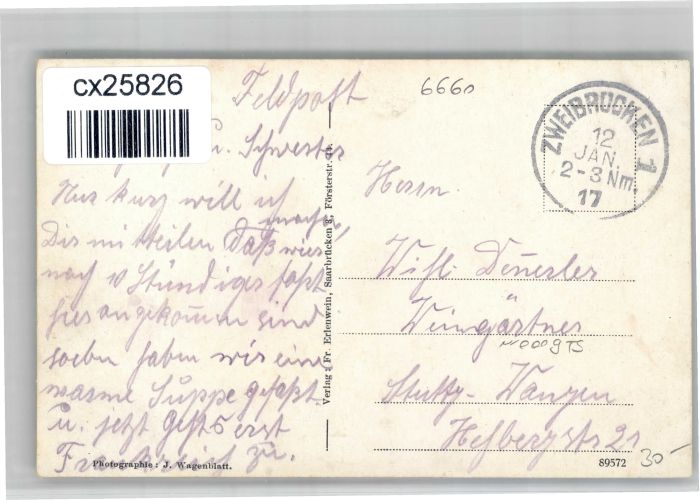 cx25826
Feldpost
6660
u. Schwester
Nur kurz will ich
Dir mitteilen daß wir
nach 10 Stündiger Fahrt
hier angekommen sind
soeben haben wir eine
warme Suppe gefaßt
u. jetzt gehts erst
Frankreich zu.
Photographie: J. Wagenblatt.
Verlag: Fr. Erlenwein, Saarbrücken 3, Försterstr.
ZWEIBRÜCKEN 1
12
JAN.
2-3 Nm.
17
Herrn
Wilh.
Weingärtner
Stuttg.- Wangen
21
89572
30-